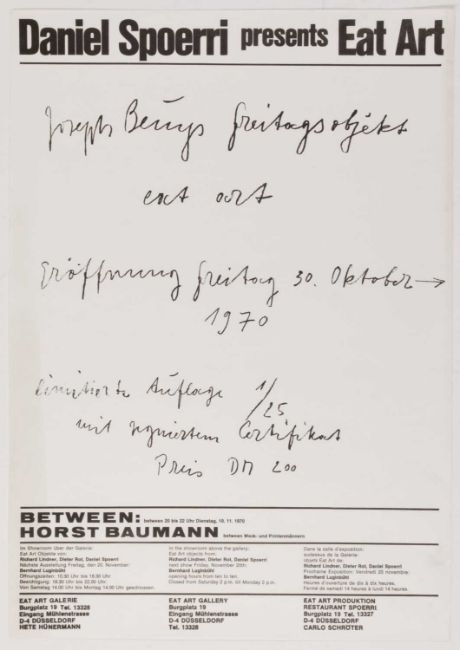 Daniel Spoerri presents Eat Art
Joseph Beuys Freitagsobjekt
eat art
Eröffnung Freitag 30. Oktober →
1970
limitierte Auflage 1/25
mit signiertem Certifikat
Preis DM 200
BETWEEN: between 20 bis 22 Uhr Dienstag, 10. 11. 1970
HORST BAUMANN between Musik- und Printermännern
Im Showroom über der Galerie:
Eat Art Objekte von:
Richard Lindner, Dieter Rot, Daniel Spoerri
Nächste Ausstellung Freitag, den 20. November:
Bernhard Luginbühl
Öffnungszeiten: 16,30 Uhr bis 18,30 Uhr.
Besichtigung: 16,30 Uhr bis 22,00 Uhr.
Von Samstag 14.00 Uhr bis Montag 14.00 Uhr geschlossen.
in the showroom above the gallery:
Eat Art objects from:
Richard Lindner, Dieter Rot, Daniel Spoerri
next show Friday, November 20th:
Bernhard Luginbühl
opening hours from ten to ten.
Closed from Saturday 2 p.m. till Monday 2 p.m.
Dans la salle d'exposition
audessus de la Galerie:
objets Eat Art de:
Richard Lindner, Dieter Rot, Daniel Spoerri
Prochaine Exposition: Vendredi 20 novembre:
Bernhard Luginbühl
heures d'ouverture de dix à dix heures.
Fermé de samedi 14 heures à lundi 14 heures.
EAT ART GALERIE
Burgplatz 19 Tel. 13328
Eingang Mühlenstrasse
D-4 DÜSSELDORF
HETE HÜNERMANN
EAT ART GALLERY
Burgplatz 19
Eingang Mühlenstrasse
D-4 DÜSSELDORF
Tel. 13328
EAT ART PRODUKTION
RESTAURANT SPOERRI
Burgplatz Tel. 13327
D-4 DÜSSELDORF
CARLO SCHRÖTER